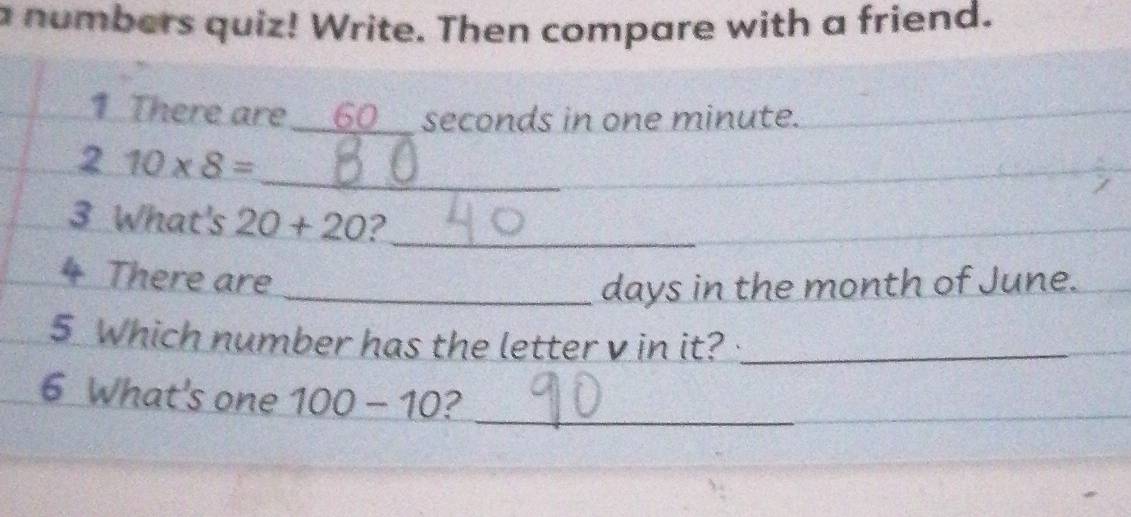 a numbers quiz! Write. Then compare with a friend.
1 There are 60 seconds in one minute.
2 10 x 8 = 80
3 What's 20 + 20? 40
4 There are ____ days in the month of June.
5 Which number has the letter v in it? ____
6 What's one 100 – 10? 90